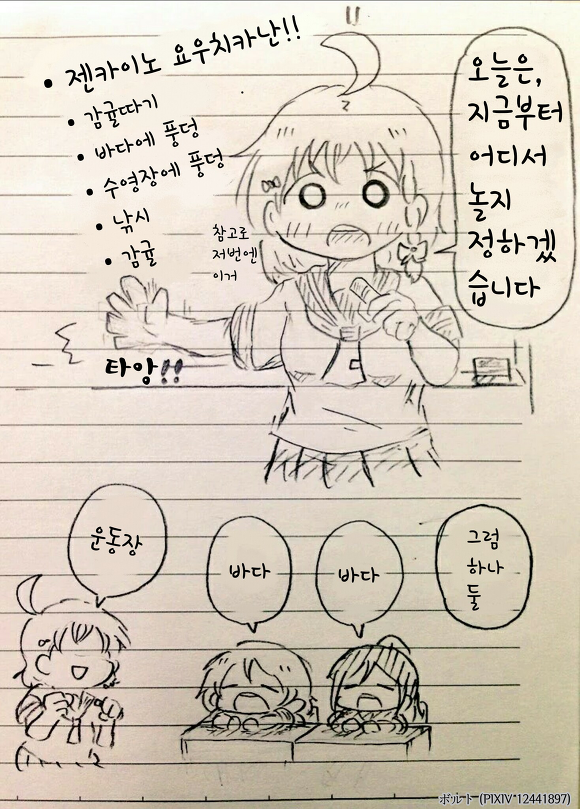 • 젠카이노 요우치카난!!
• 감귤따기
• 바다에 풍덩
• 수영장에 풍덩
• 낚시
• 감귤
참고로
저번엔
이거
오늘은,
지금부터
어디서
놀지
정하겠
습니다
타앙!!
그럼
하나
둘
바다
바다
운동장
ボルト (PIXIV*12441897)